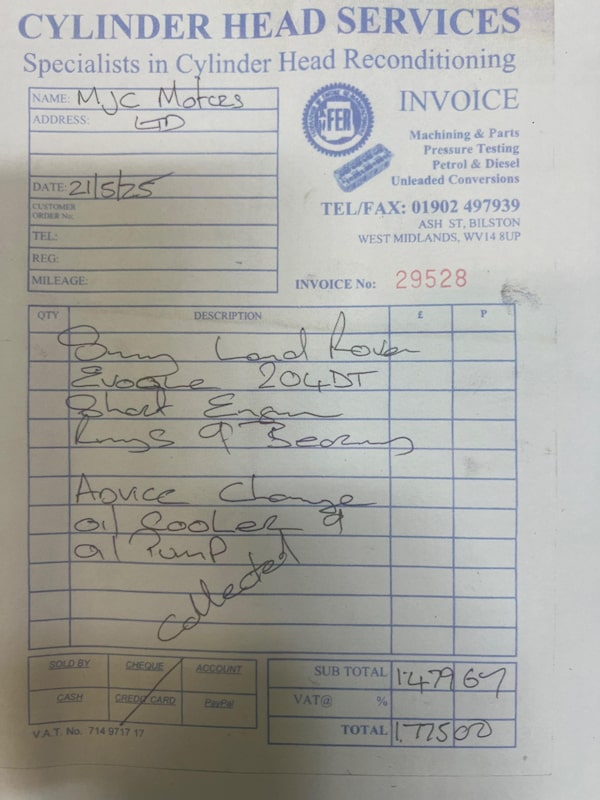 CYLINDER HEAD SERVICES
Specialists in Cylinder Head Reconditioning
NAME: MJC Motors
ADDRESS: LTD
DATE: 21/5/25
CUSTOMER
ORDER No:
TEL:
REG:
MILEAGE:
FER
INVOICE
Machining & Parts
Pressure Testing
Petrol & Diesel
Unleaded Conversions
TEL/FAX: 01902 497939
ASH ST, BILSTON
WEST MIDLANDS, WV14 8UP
INVOICE No: 29528
QTY DESCRIPTION £ P
Land Rover
Evoque 204DT
Short Engin
Rings & Bearing
Advice Change
oil Cooler &
oil Pump
collected
SOLD BY CHEQUE ACCOUNT
CASH CREDIT CARD PayPal
V.A.T. No. 714 9717 17
SUB TOTAL 1479 67
VAT@ %
TOTAL 1.775 00